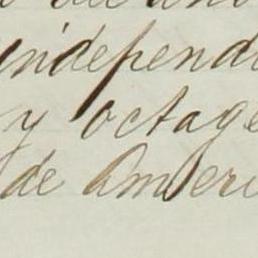 independ
y octage
de Ameri